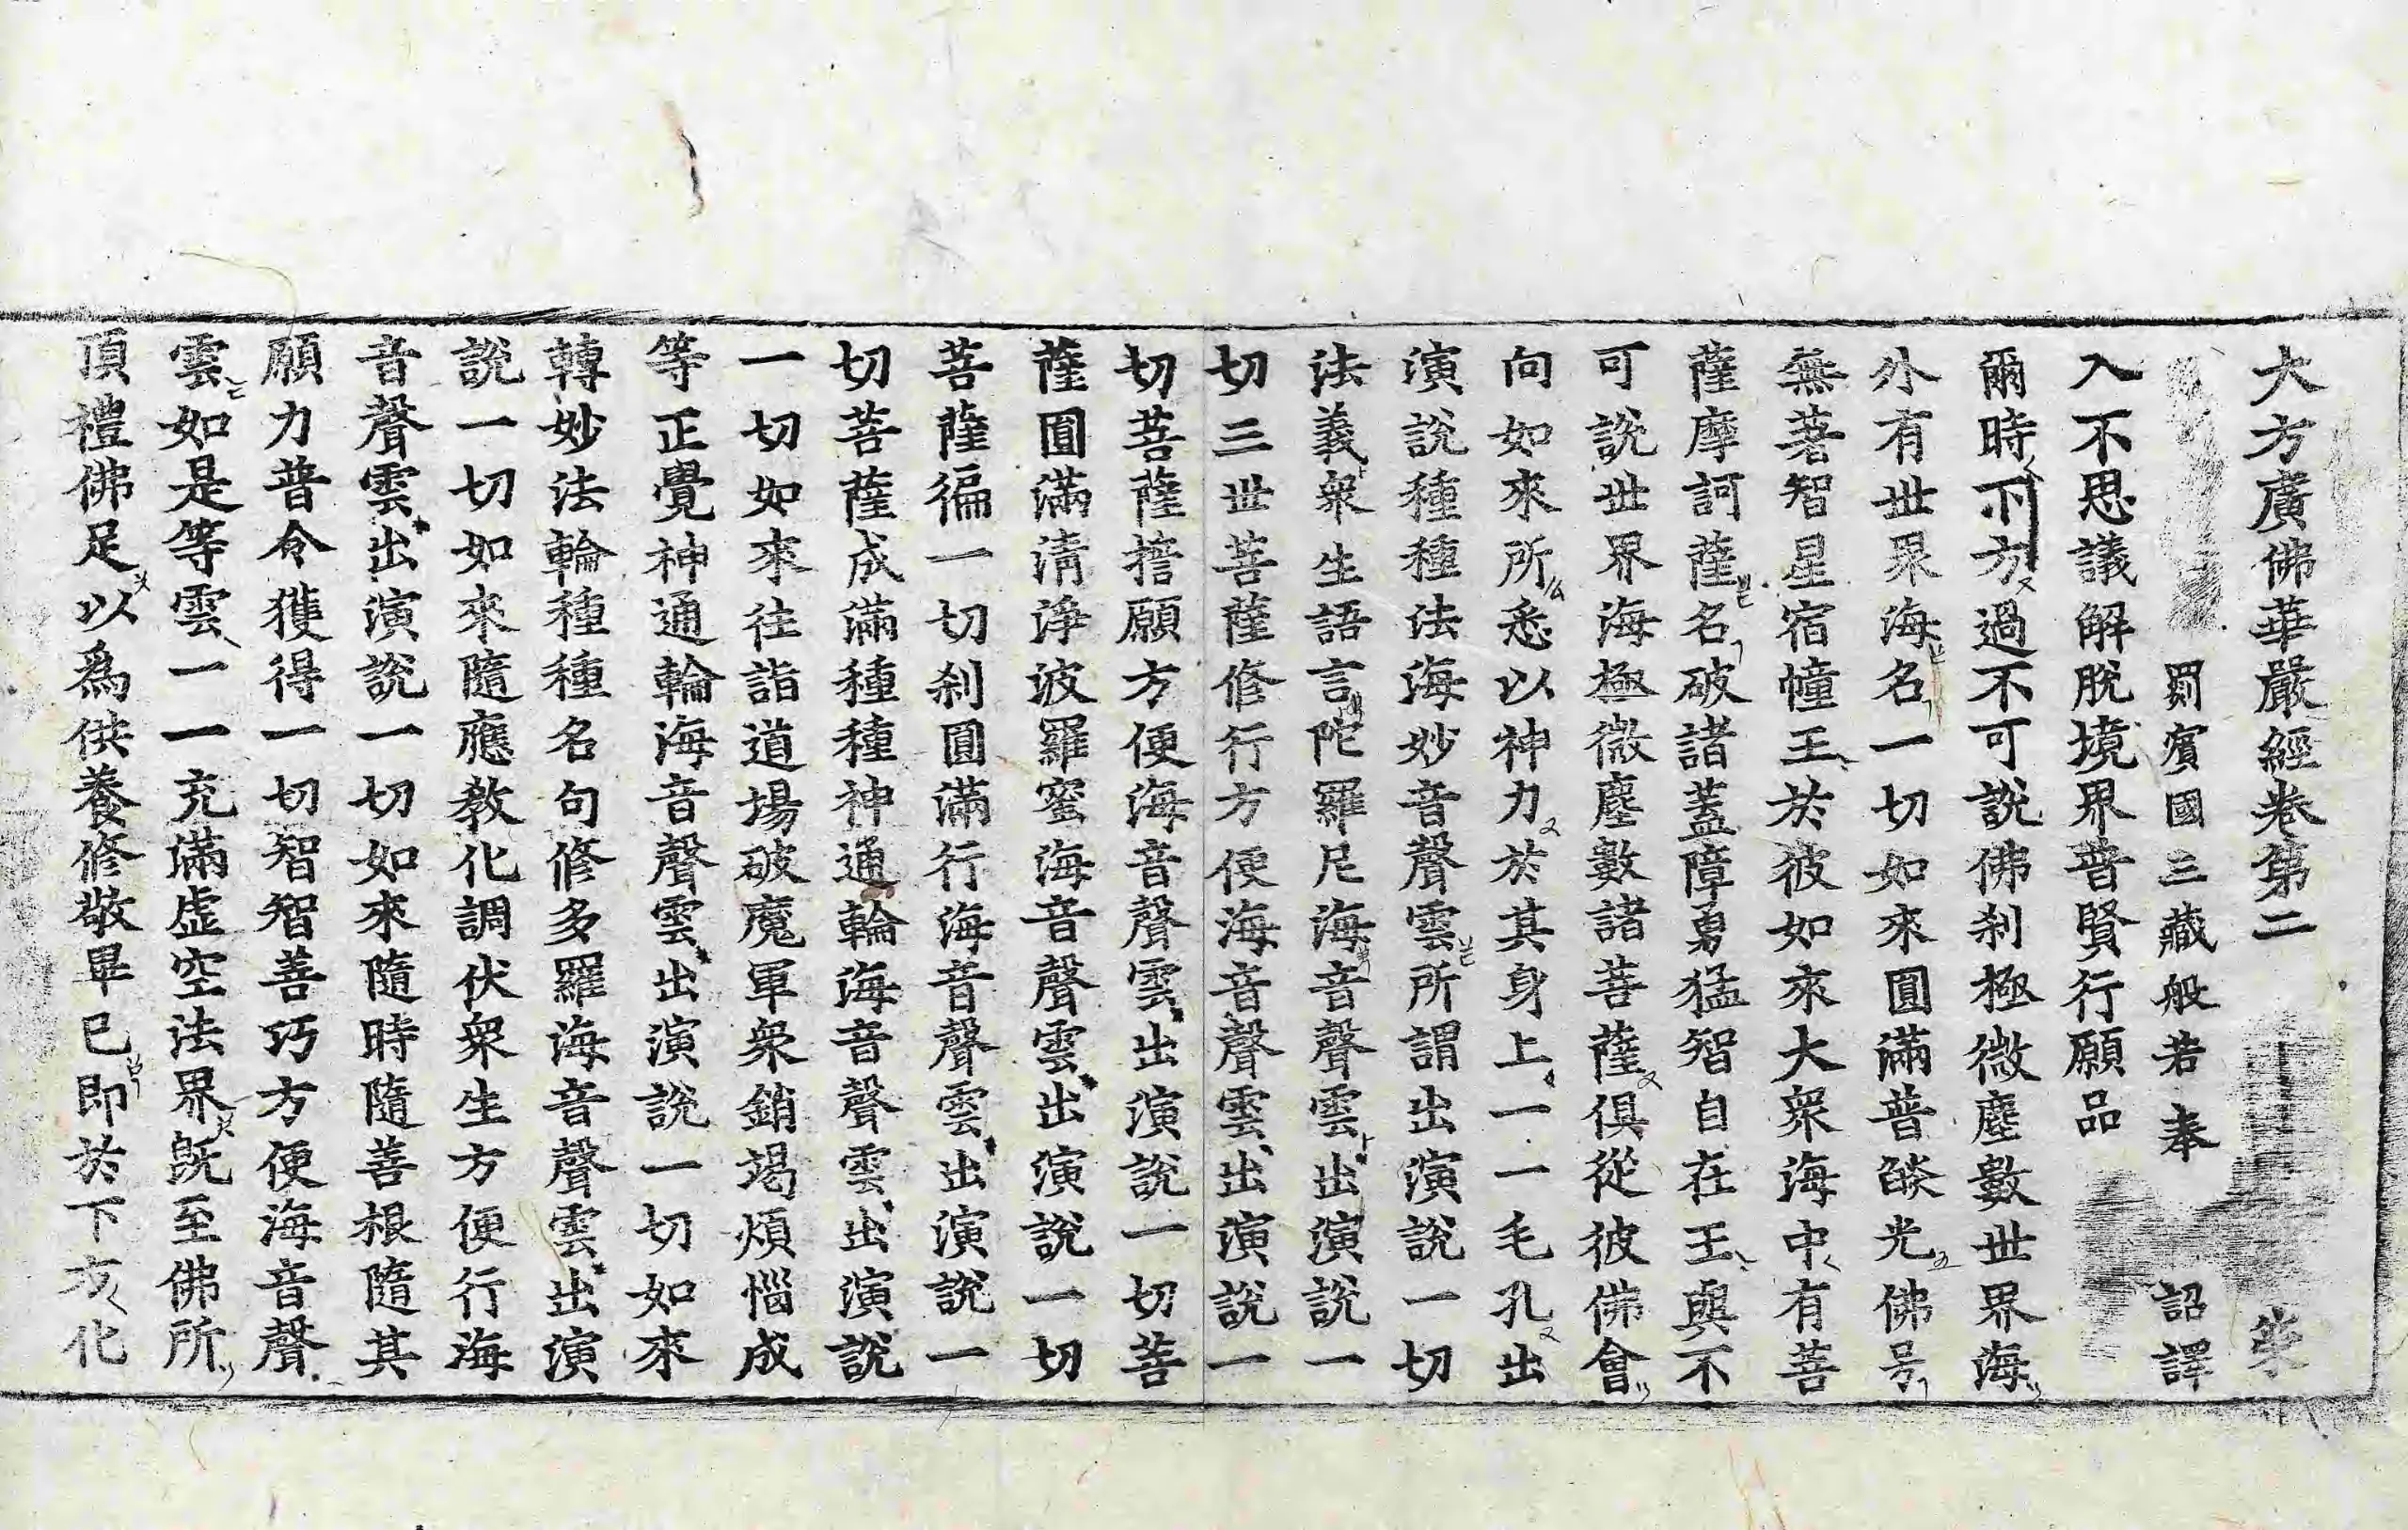 大方廣佛華嚴經卷第二
罽賓國三藏般若奉 詔譯
入不思議解脫境界普賢行願品
爾時下方過不可說佛刹極微塵數世界海
外有世界海名一切如來圓滿普燄光佛号
無著智星宿幢王於彼如來大衆海中有菩
薩摩訶薩名破諸蓋障勇猛智自在王與不
可說世界海極微塵數諸菩薩俱從彼佛會
向如來所悉以神力於其身上一一毛孔出
演說種種法海妙音聲雲所謂出演說一切
法義衆生語言陀羅尼海音聲雲出演說一
切三世菩薩修行方便海音聲雲出演說一
切菩薩擔願方便海音聲雲出演說一切菩
薩圓滿淸淨波羅蜜海音聲雲出演說一切
菩薩徧一切刹圓滿行海音聲雲出演說一
切菩薩成滿種種神通輪海音聲雲出演說
一切如來往詣道場破魔軍衆銷竭煩惱成
等正覺神通輪海音聲雲出演說一切如來
轉妙法輪種種名句修多羅海音聲雲出演
說一切如來隨應敎化調伏衆生方便行海
音聲雲出演說一切如來隨時隨善根隨其
願力普令獲得一切智智善巧方便海音聲
雲如是等雲一一充滿虛空法界旣至佛所
頂禮佛足以爲供養修敬畢已卽於下方化